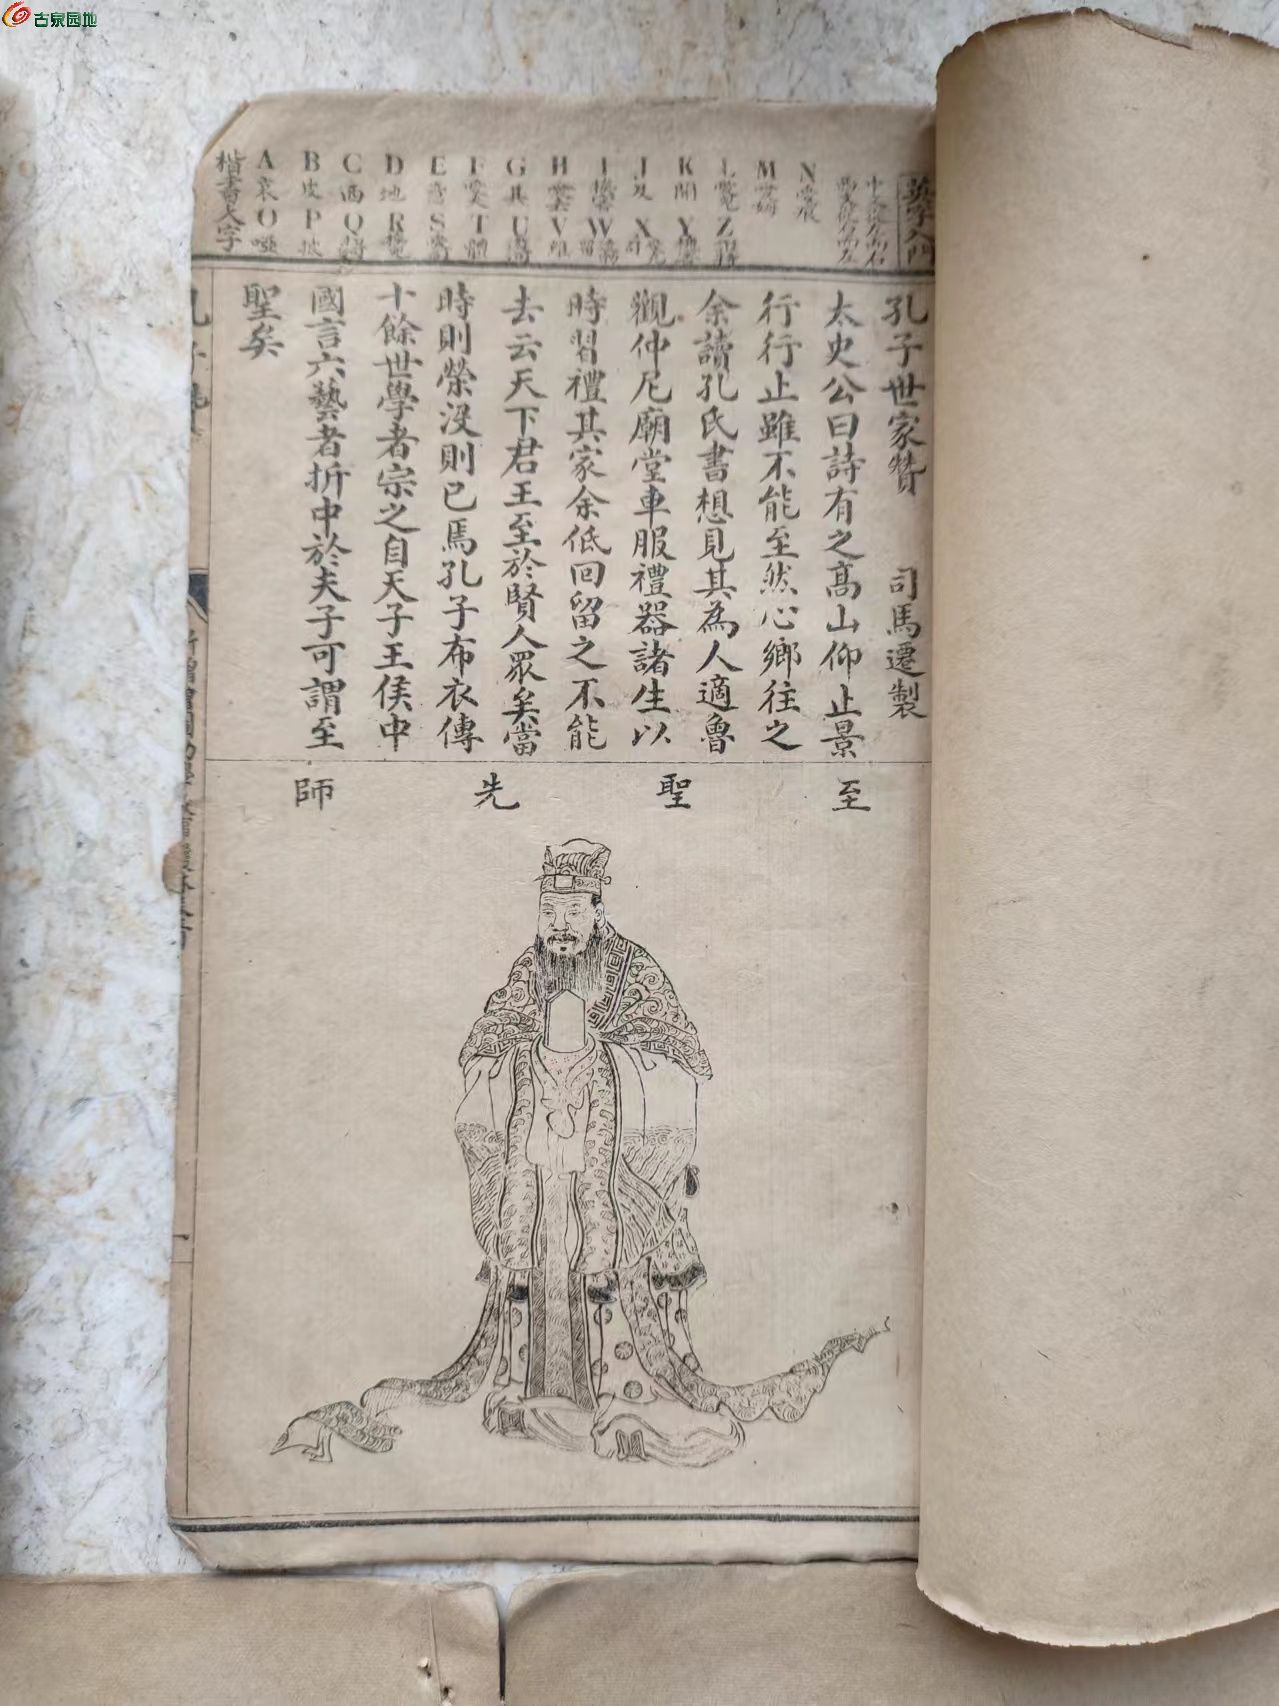 古泉园地
英學入門
中文從左而右
A 哀
B 皮
C 西
D 地
E 意
F 愛夫
G 其
H 愛去
I
J
K 開
L
M 愛姆
N 愛痕
O 啞
P 披
Q
R
S
T 體
U
V 維
W
X
Y
Z
楷書大字
孔子世家贊 司馬遷製
太史公曰詩有之高山仰止景
行行止雖不能至然心鄉往之
余讀孔氏書想見其為人適魯
觀仲尼廟堂車服禮器諸生以
時習禮其家余低回留之不能
去云天下君王至於賢人眾矣當
時則榮沒則已焉孔子布衣傳
十餘世學者宗之自天子王侯中
國言六藝者折中於夫子可謂至
聖矣
至聖先師
一